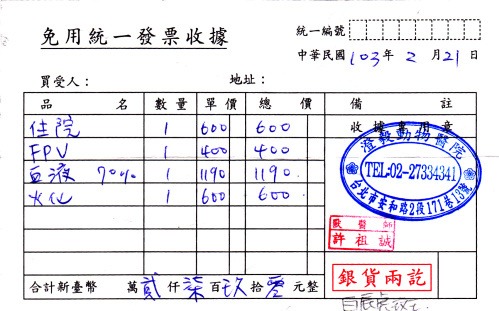 免用統一發票收據
統一編號
中華民國 103 年 2 月 21 日
買受人： 地址：
品名 數量 單價 總價 備註
收據專用章
住院 1 600 600
FPV 1 400 400
血液 70% 1 1190 1190
火化 1 600 600
動物醫院
TEL:02-27334341
台北市安和路2段171巷13號
獸醫師
許祖誠
合計新臺幣 萬 貳 仟 柒 百 玖 拾 零 元整
銀貨兩訖